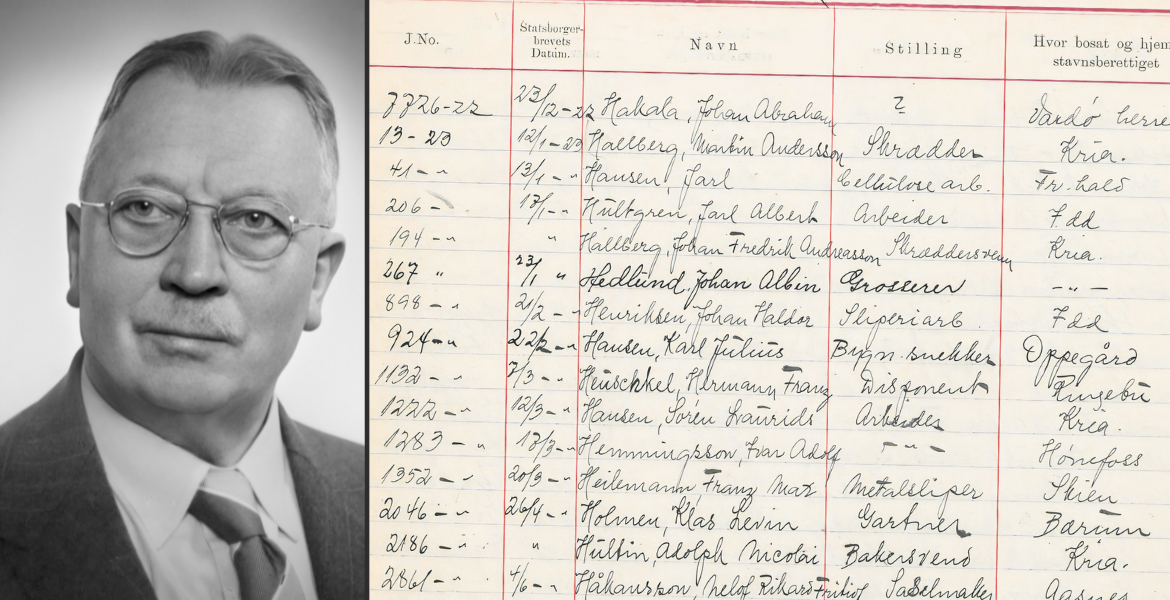 J.No. Statsborger-brevets Datum. Navn Stilling Hvor bosat og hjem stavnsberettiget
7726-22 23/12-22 Hakala, Johan Abraham ? Vardö herre
13-23 12/1-23 Hallberg, Martin Andersson Skrædder Kria.
41 - " 13/1 - " Hansen, Jarl Cellulose arb. Fr.hald
206 - " 17/1 - " Hultgren, Jarl Albert Arbeider F dd
194 - " " Hallberg, Johan Fredrik Andreasson Skræddersvenn Kria.
267 " 23/1 " Hedlund, Johan Albin Grosserer - " -
898 - " 21/2 - " Henriksen, Johan Haldor Sliperiarb. F dd
924 - " 22/2 - " Hansen, Karl Julius Bygn.snekker Oppegård
1132 - " 7/3 - " Heuschkel, Hermann Franz Disponent Ringebu
1222 - " 12/3 - " Hansen, Sören Laurids Arbeider Kria.
1283 - " 17/3 - " Hemmingsson, Ivar Adolf - " - Hönefoss
1352 - " 20/3 - " Heilemann Franz Max Metalsliper Skien
2046 - " 26/4 - " Holmen, Klas Levin Gartner Bærum
2186 - " " Hultin, Adolph Nicolai Bakersvend Kria.
2861 - " 4/6 - " Håkansson, Nelof Rikard Fritiof Sadelmaker Aasnes